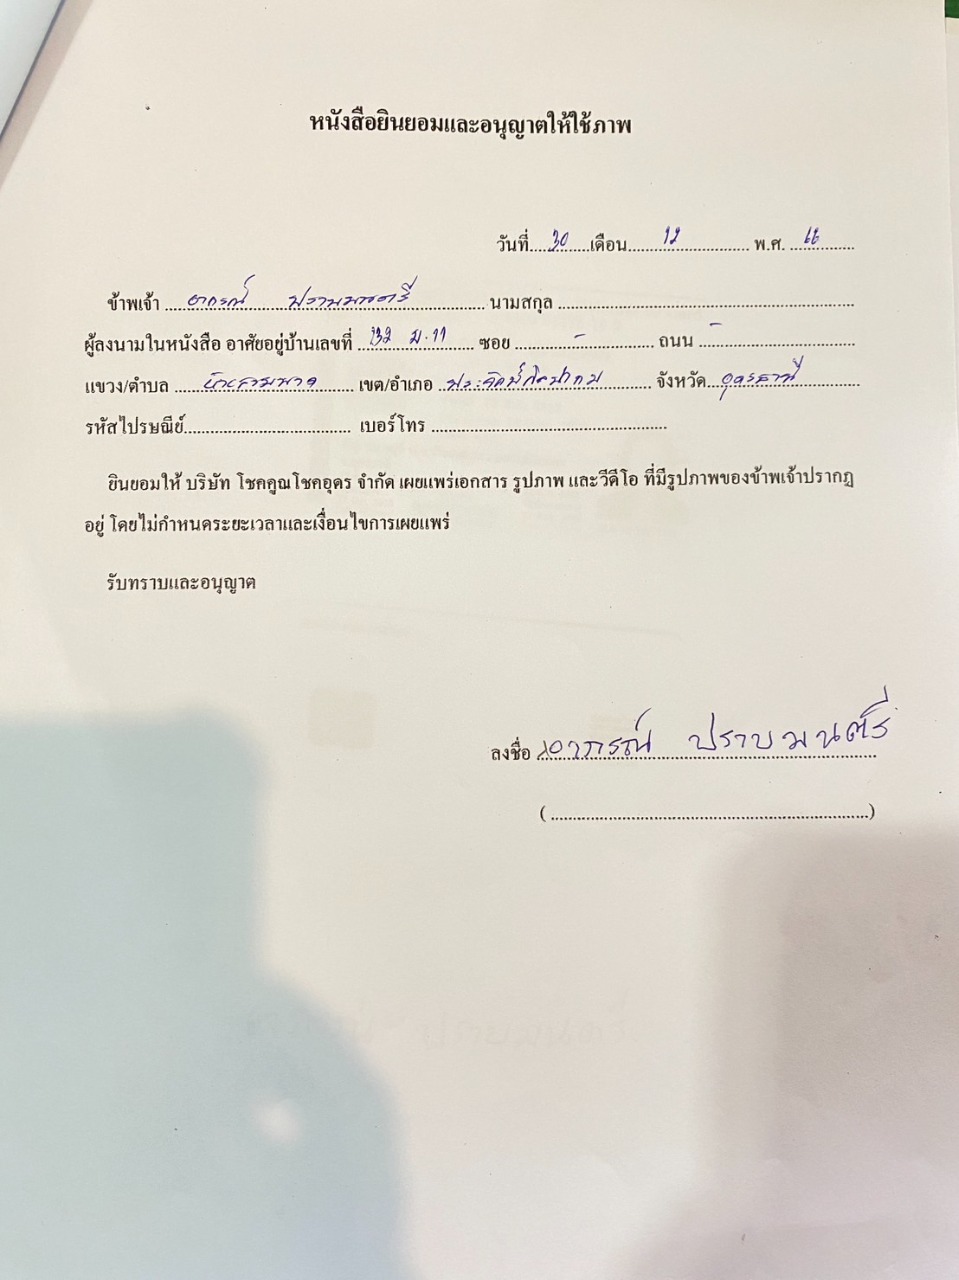 หนังสือยินยอมและอนุญาตให้ใช้ภาพ
วันที่....30....เดือน.......12.............. พ.ศ. ...66.......
ข้าพเจ้า ....อาภรณ์ ปราบมนตรี............ นามสกุล ..............................................
ผู้ลงนามในหนังสือ อาศัยอยู่บ้านเลขที่ ..132 ม.11..... ซอย ..........-............ ถนน ...-.........................
แขวง/ตำบล .....บ้านสามพาด....... เขต/อำเภอ ..ประจักษ์ศิลปาคม......... จังหวัด...อุดรธานี............
รหัสไปรษณีย์.................................... เบอร์โทร ..................................................
ยินยอมให้ บริษัท โชคคูณโชคอุดร จำกัด เผยแพร่เอกสาร รูปภาพ และวีดีโอ ที่มีรูปภาพของข้าพเจ้าปรากฏ
อยู่ โดยไม่กำหนดระยะเวลาและเงื่อนไขการเผยแพร่
รับทราบและอนุญาต
ลงชื่อ ..อาภรณ์ ปราบมนตรี..
( ......................................................................)